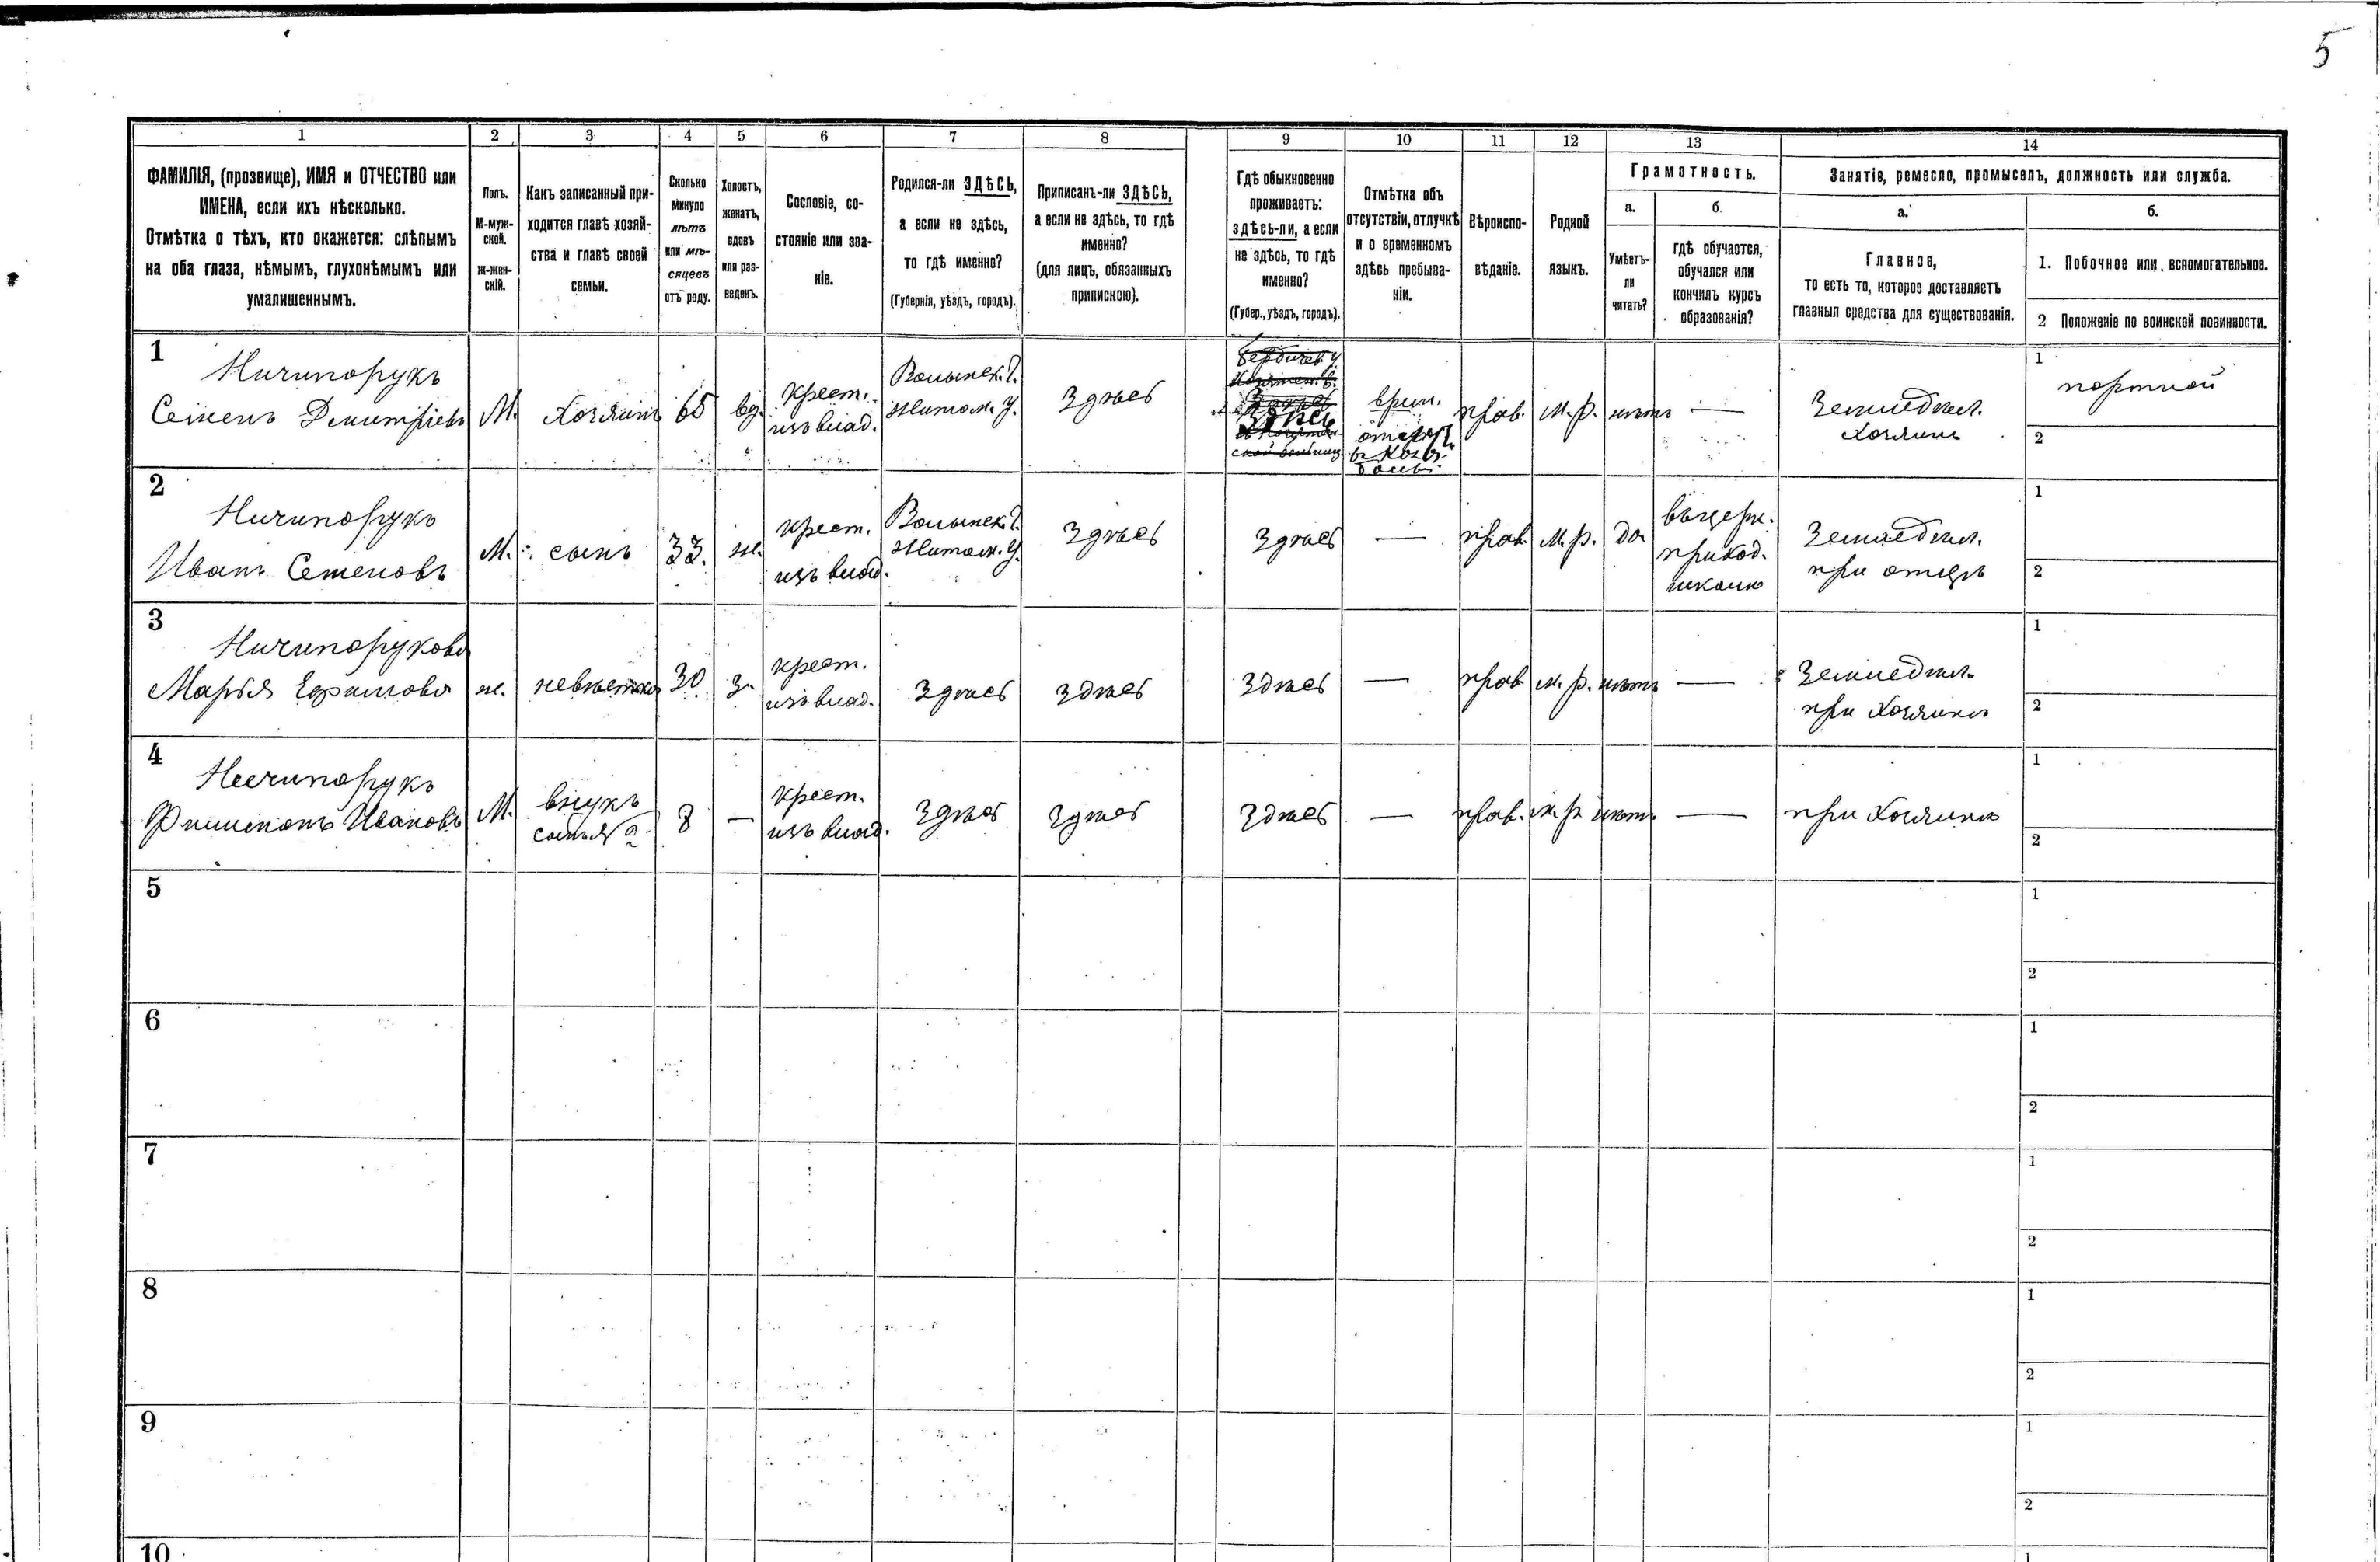 5
1 2 3 4 5 6 7 8 9 10 11 12 13 14
ФАМИЛІЯ, (прозвище), ИМЯ и ОТЧЕСТВО или
ИМЕНА, если ихъ нѣсколько.
Отмѣтка о тѣхъ, кто окажется: слѣпымъ
на оба глаза, нѣмымъ, глухонѣмымъ или
умалишеннымъ.
Полъ.
М-муж-
ской.
ж-жен-
скій.
Какъ записанный при-
ходится главѣ хозяй-
ства и главѣ своей
семьи.
Сколько
минуло
лѣтъ
или мѣ-
сяцевъ
отъ роду.
Холостъ,
женатъ,
вдовъ
или раз-
веденъ.
Сословіе, со-
стояніе или зва-
ніе.
Родился-ли ЗДѢСЬ,
а если не здѣсь,
то гдѣ именно?
(Губернія, уѣздъ, городъ).
Приписанъ-ли ЗДѢСЬ,
а если не здѣсь, то гдѣ
именно?
(для лицъ, обязанныхъ
припискою).
Гдѣ обыкновенно
проживаетъ:
здѣсь-ли, а если
не здѣсь, то гдѣ
именно?
(Губер., уѣздъ, городъ).
Отмѣтка объ
отсутствіи, отлучкѣ
и о временномъ
здѣсь пребыва-
ніи.
Вѣроиспо-
вѣданіе.
Родной
языкъ.
Грамотность.
а.
Умѣетъ-
ли
читать?
б.
гдѣ обучается,
обучался или
кончилъ курсъ
образованія?
Занятіе, ремесло, промыселъ, должность или служба.
а.
Главное,
то есть то, которое доставляетъ
главныя средства для существованія.
б.
1. Побочное или вспомогательное.
2 Положеніе по воинской повинности.
1
Ничипорукъ
Семенъ Дмитріевъ
М.
Хозяинъ
65
вд.
крест.
изъ влад.
Волынск. Г.
Житом. У.
Здѣсь
Здѣсь
врем.
прав.
м.р.
нѣтъ
—
Земледѣл.
Хозяинъ
1
портной
2
2
Ничипорукъ
Иванъ Семеновъ
М.
сынъ
33.
ж.
крест.
изъ влад.
Волынск. Г.
Житом. У.
Здѣсь
Здѣсь
—
прав.
м.р.
да
приход.
школѣ
Земледѣл.
при отцѣ
1
2
3
Ничипорукова
Марья Ефимова
ж.
невѣстка
30
з.
крест.
изъ влад.
Здѣсь
Здѣсь
Здѣсь
—
прав.
м.р.
нѣтъ
—
Земледѣл.
при Хозяинѣ
1
2
4
Ничипорукъ
Филимонъ Ивановъ
М.
внукъ
8
—
крест.
изъ влад.
Здѣсь
Здѣсь
Здѣсь
—
прав.
м.р.
нѣтъ
—
при Хозяинѣ
1
2
5
1
2
6
1
2
7
1
2
8
1
2
9
1
2
10
1